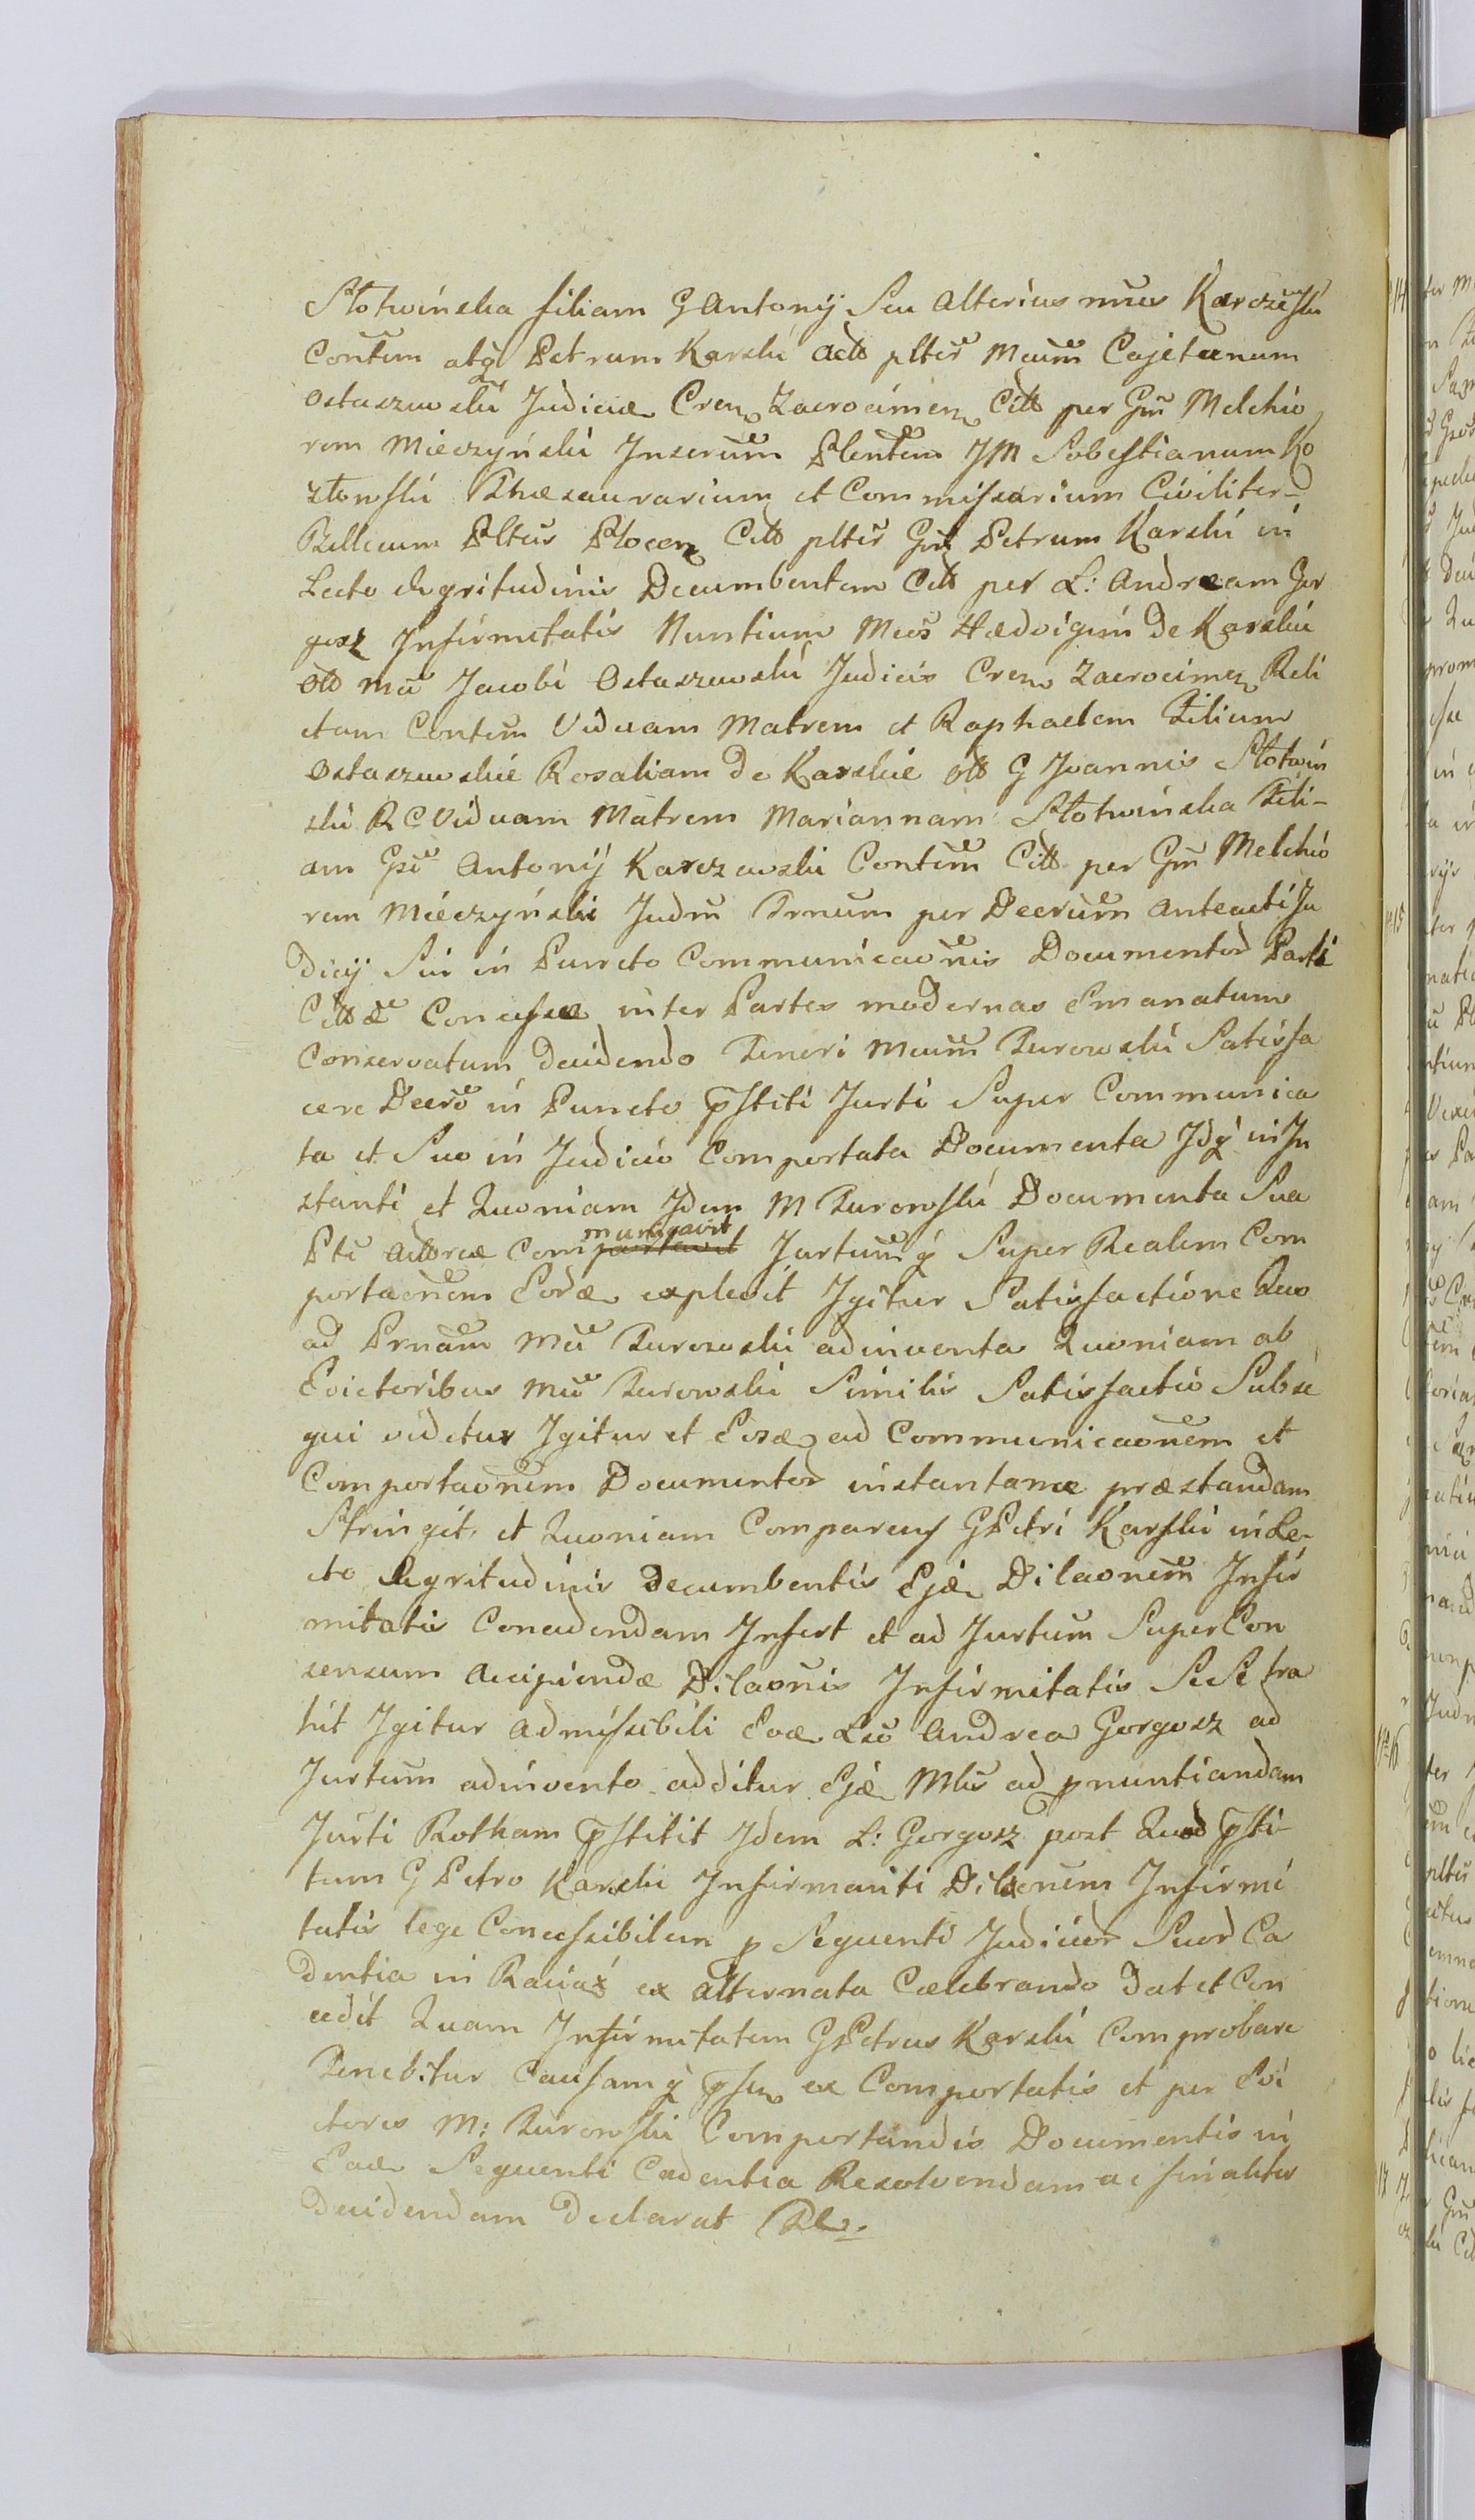 Słotwinska filiam G Antonij Seu Alterius nnis Karczewski
Contum atq Petrum Karski Act plter Mcum Cajetanum
Ostaszewski Judicem Cren Zacrocimen Citt per Gm Melchio
rem Mieczyński Inserum Plentem JM Sobestianum Ko
złowski Thezaurarium et Commissarium Civiliter-
Bellicum Pltus Plocen Citt plter Gm Petrum Karski in
Lecto Aegritudinis Decumbentem Citt per L: Andream Gor
gosz Infirmitatis Nuntium Mcos Hedvigim de Karskie
Olt Mci Jacobi Ostaszewski Judicis Cren Zacrocimen Reli
ctam Contem Viduam Matrem et Raphaelem Filium
Ostaszewskie Rosaliam de Karskie Olt G Joannis Słotwin
ski RC Viduam Matrem Mariannam Słotwinska Fili-
am Gsi Antonij Karczewski Contem Citt per Gm Melchio
rem Mieczyński Judm Prnum per Decrum Anteacti Ju
dicij Sui in Puncto Communicaonis Documentor Parti
Cittae Concessae inter Partes modernas Emanatum
Conservatum Decidendo Teneri Mcum Turowski Satisfa
cere Decro in Puncto pstiti Jurti Super Communica
ta et Suo in Judicio Comportata Documenta Idq in In
stanti et Quoniam Idem M Turowski Documenta Sua
Pti Actoreae Com portavit municavit Jurtumq Super Realem Com
portaonem Eordae explevit Igitur Satisfactione Quo
ad Prnam Mci Turowski adinventa Quoniam ab
Evictoribus Mci Turowski Similis Satisfactio Subse
qui videtur Igitur et Eosae ad Communicaonem et
Comportaonem Documentor instantanee praestandam
Stringit, et Quoniam Comparens G Petri Karski in Le-
cto Aegritudinis Decumbentis Ejae Dilaonem Infir
mitatis Concedendam Infert et ad Jurtum Super Con
sensum Accipiendae Dilaonis Infirmitatis Se Se tra
hit Igitur Admissibili Eoae Lso Andrea Gorgosz ad
Jurtum adinvento additur Ejae Mlis ad pnuntiandam
Jurti Rotham pstitit Idem L: Gorgosz post Quod psti-
tum G Petro Karski Infirmanti Dilaonem Infirmi
tatis lege Concessibilem p Sequenti Judicior Suor Ca
dentia in Raciąż ex alternata Caelebrando Dat et Con
cedit Quam Infirmitatem G Petrus Karski Comprobare
Tenebitur Causamq psen ex Comportatis et per Evi
ctores M: Turowski Comportandis Documentis in
Eadae Sequenti Cadentia Resolvendam ac finaliter
Decidendam Declarat